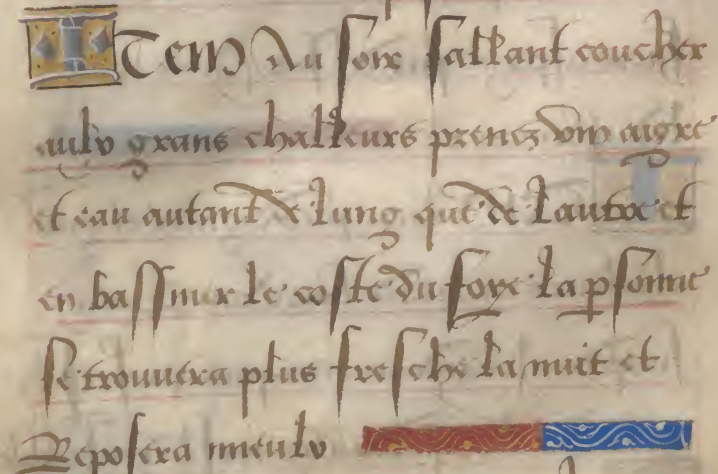 Item Au soir sallant coucher
aulx grans challeurs prenez vin aigre
et eau autant de lung que de lautre et
en bassiner le coste du foye la psonne
se trouvera plus fresche la nuit et
Reposera mieulx